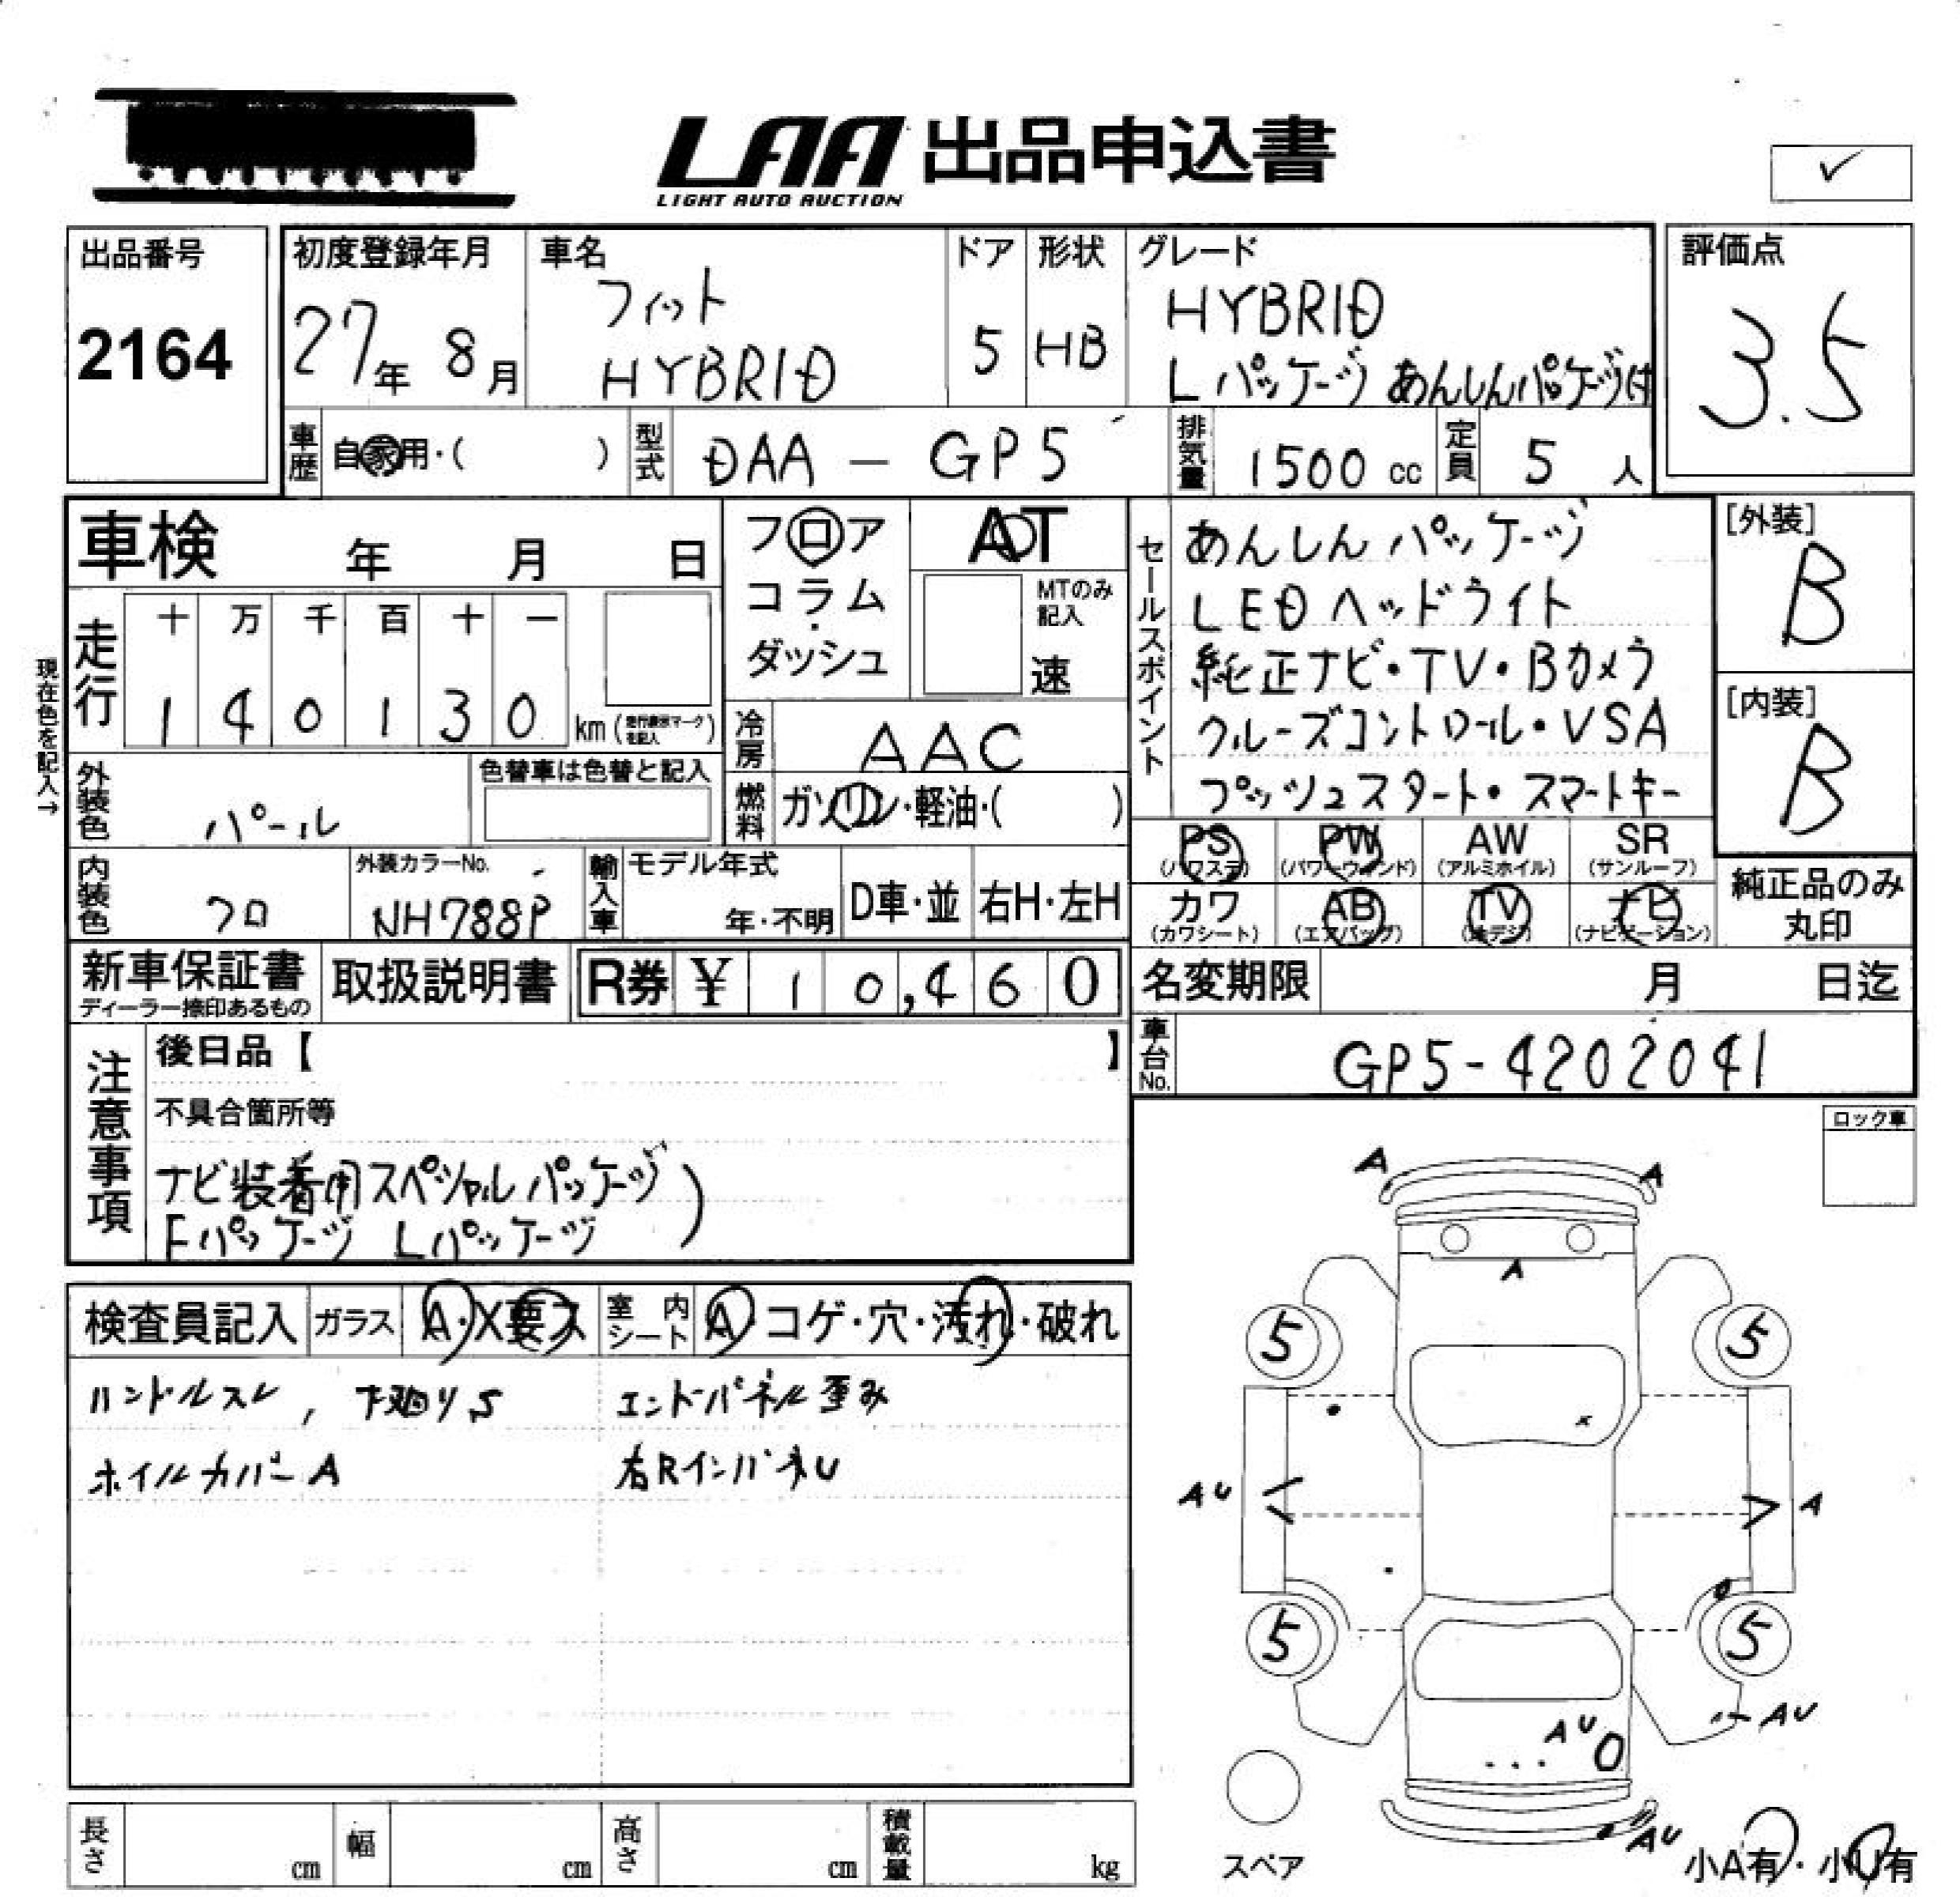 LAA 出品申込書
LIGHT AUTO AUCTION
✓
出品番号
2164
初度登録年月
27年 8月
車名
フィット
HYBRID
ドア
5
形状
HB
グレード
HYBRID
Lパッケージ あんしんパッケージ付
評価点
3.5
車歴 自家用・( )
型式 DAA - GP5
排気量 1500 cc
定員 5 人
車検 年 月 日
フロア
コラム
ダッシュ
AT
MTのみ
記入
速
セールスポイント
あんしんパッケージ
LEDヘッドライト
純正ナビ・TV・Bカメラ
クルーズコントロール・VSA
プッシュスタート・スマートキー
[外装]
B
[内装]
B
現在色を記入→
走行
十 万 千 百 十 一
1 4 0 1 3 0 km (走行表示マークを記入)
冷房 AAC
外装色 パール
色替車は色替と記入
燃料 ガソリン・軽油・( )
内装色 クロ
外装カラーNo.
NH788P
輸入車
モデル年式
年・不明
D車・並
右H・左H
PS
(パワステ)
PW
(パワーウィンド)
AW
(アルミホイル)
SR
(サンルーフ)
カワ
(カワシート)
AB
(エアバッグ)
TV
(地デジ)
ナビ
(ナビゲーション)
純正品のみ
丸印
新車保証書
ディーラー捺印あるもの
取扱説明書
R券 ¥ 10,460
名変期限 月 日迄
車台No. GP5-4202041
注意事項
後日品【 】
不具合箇所等
ナビ装着用スペシャルパッケージ
Fパッケージ Lパッケージ
ロック車
検査員記入
ガラス A・X要ス
室内シート A・コゲ・穴・汚れ・破れ
ハンドルスレ, 下廻りS
エンドパネル歪み
ホイルカバーA
右RインパネU
A
A
A
5
5
AU
A
5
5
AU
AU
AU
スペア
小A有・小U有
長さ cm
幅 cm
高さ cm
積載量 kg